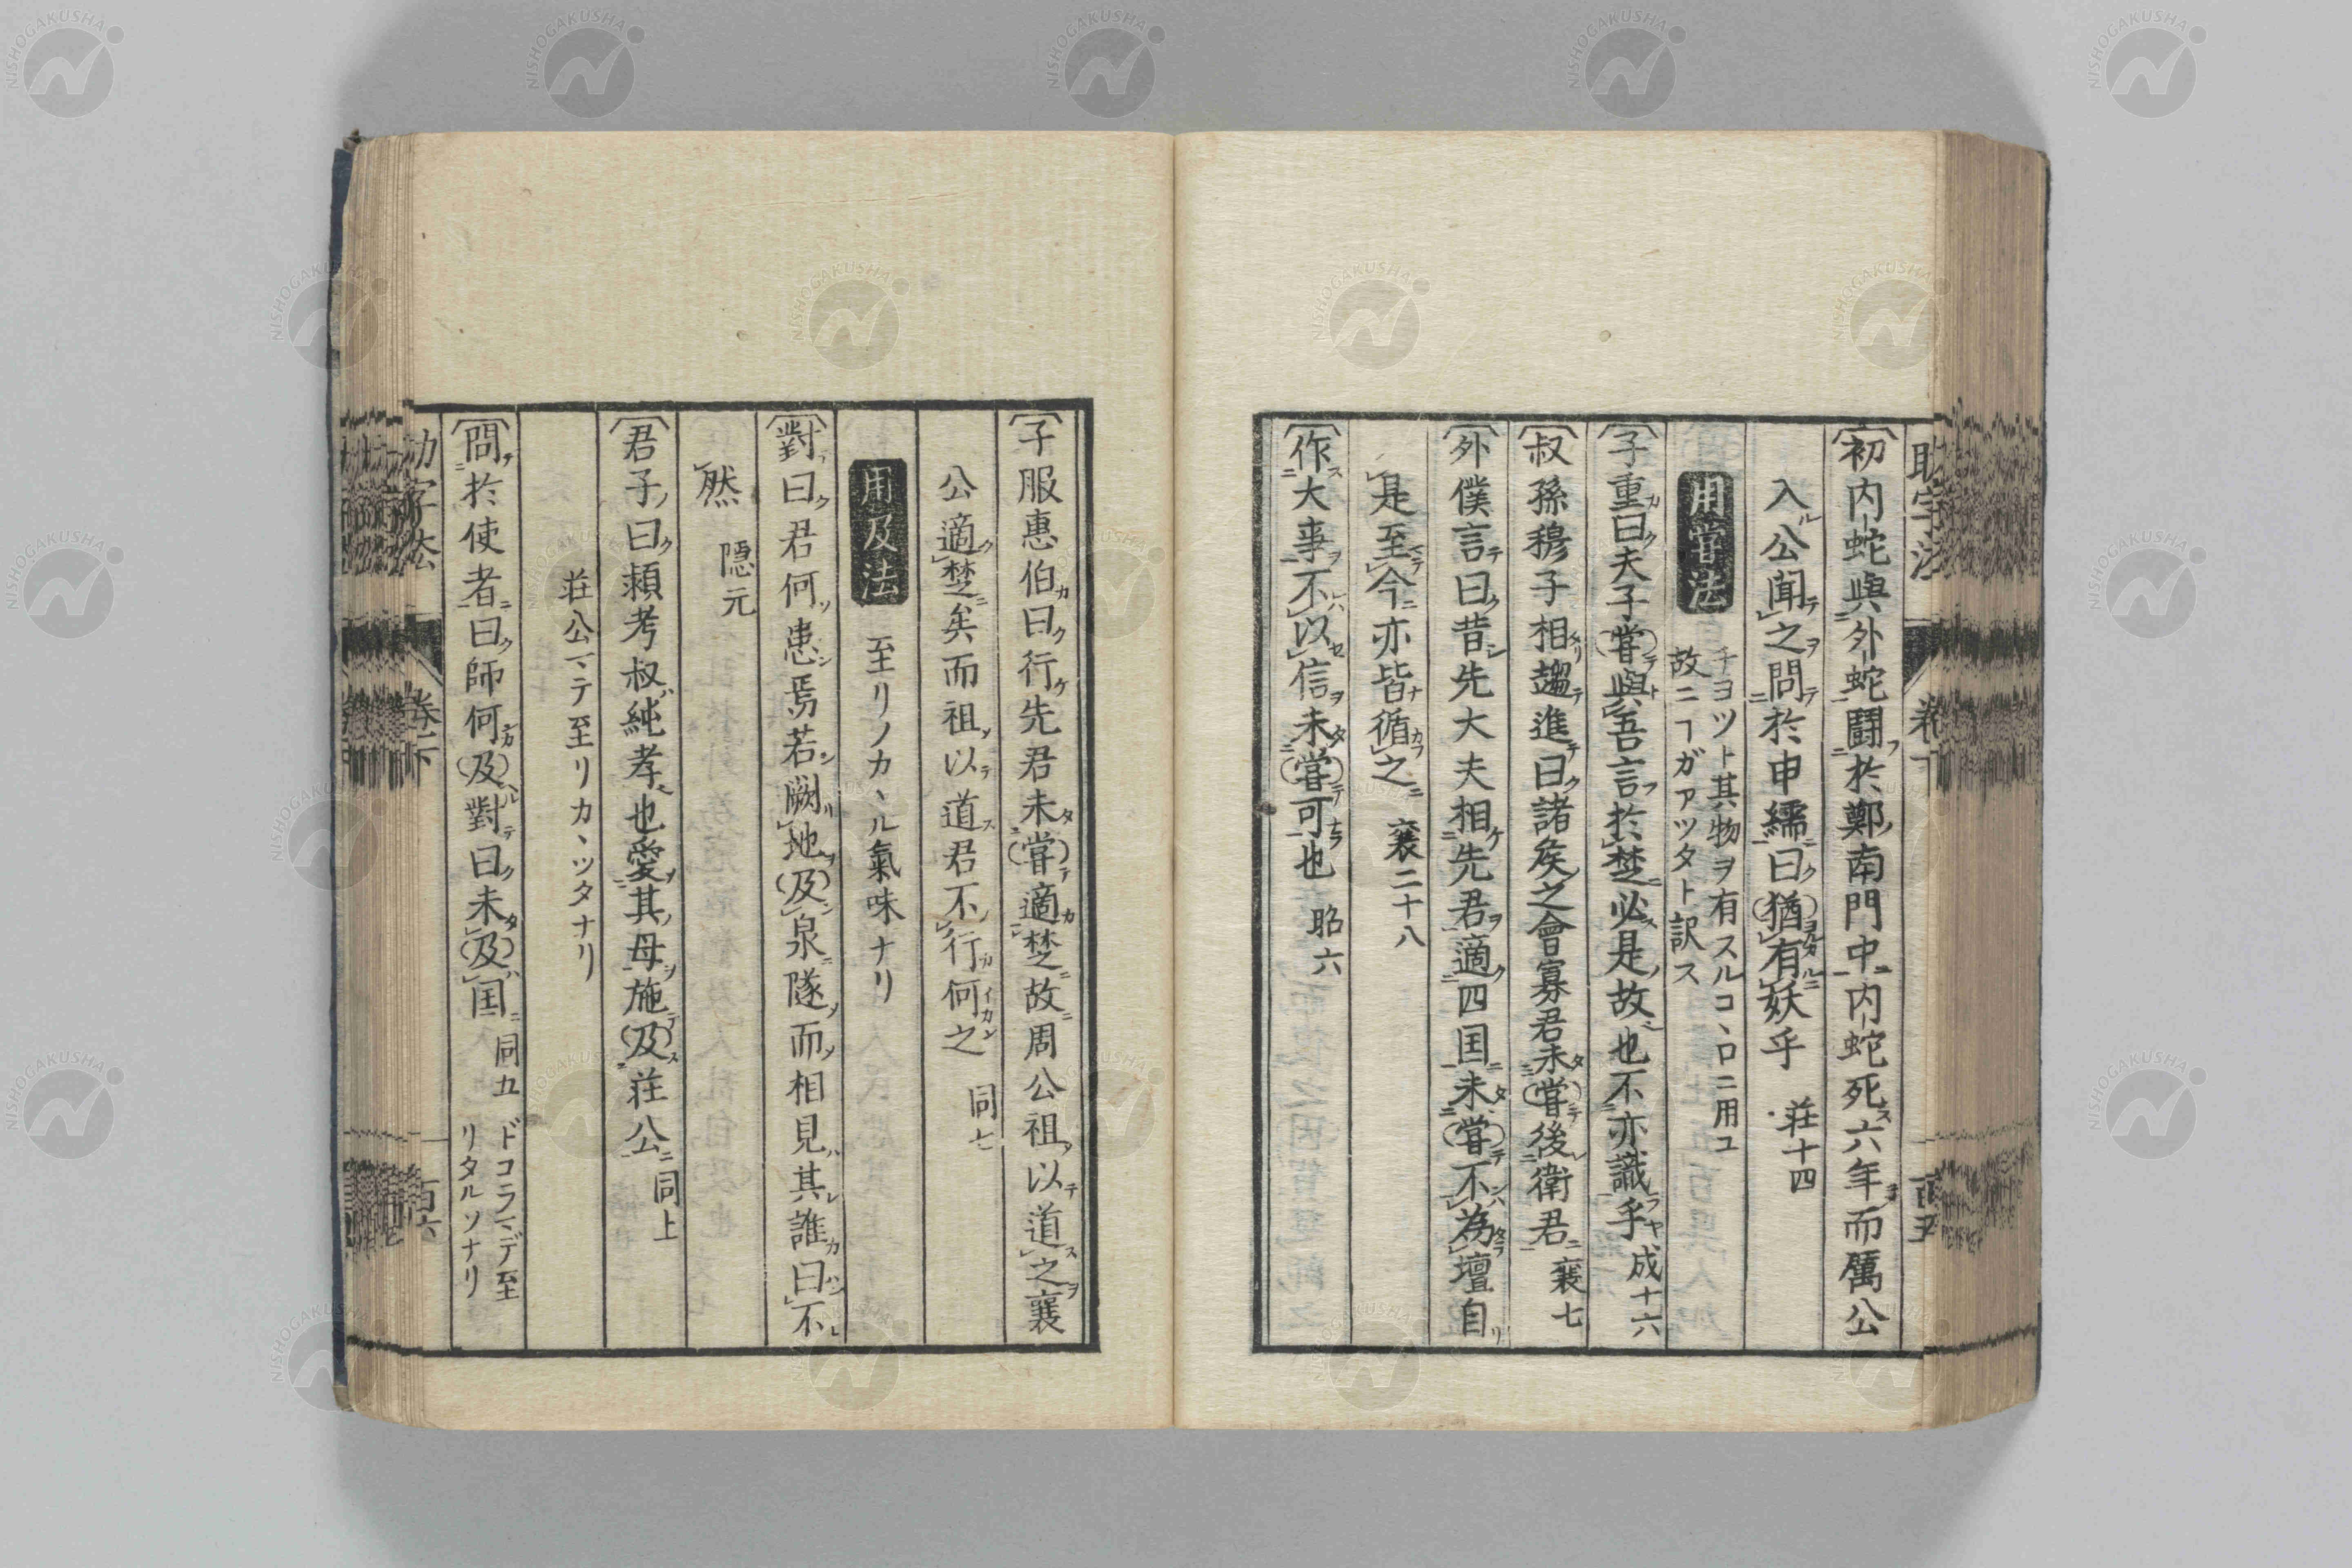 初内蛇與外蛇闘於鄭南門中内蛇死六年而厲公
入公聞之問於申繻曰猶有妖乎 荘十四
用甞法
チヨツト其物ヲ有スルコヽロニ用ユ
故ニヿガアツタト訳ス
子重曰夫子甞與吾言於楚必是故也不亦識乎 成十六
叔孫穆子相趨進曰諸矦之會寡君未甞後衛君 襄七
外僕言曰昔先大夫相先君適四国未甞不為壇自
是至今亦皆循之 襄二十八
作大事不以信未甞可也 昭六
子服惠伯曰行先君未甞適楚故周公祖以道之襄
公適楚矣而祖以道君不行何之 同七
用及法
至リノカヽル氣味ナリ
對曰君何患焉若闕地及泉隧而相見其誰曰不
然 隠元
君子曰頴考叔純孝也愛其母施及荘公 同上
荘公マテ至リカヽツタナリ
問於使者曰師何及對曰未及国 同五
ドコラマデ至
リタルソナリ
卷下
百六
NISHOGAKUSHA